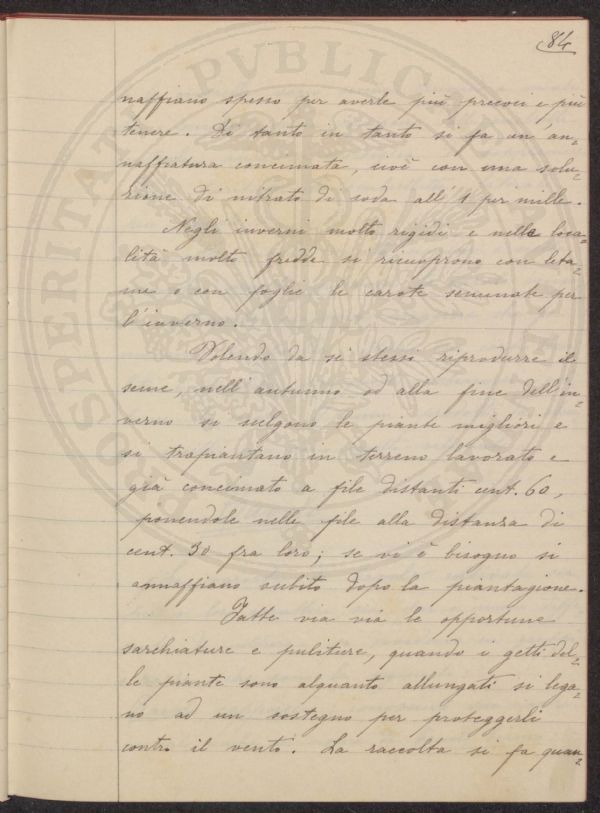 84
naffiano spesso per averle più precoci e più
tenere. Di tanto in tanto si fa un'an=
naffiatura concimata, cioè con una solu=
zione di nitrato di soda all'1 per mille.
Negli inverni molto rigidi e nelle loca=
lità molto fredde si ricuoprono con leta=
me o con foglie le carote seminate per
l'inverno.
Volendo da sè stessi riprodurre il
seme, nell'autunno od alla fine dell'in=
verno si svelgono le piante migliori e
si trapiantano in terreno lavorato e
già concimato a file distanti cent. 60,
ponendole nelle file alla distanza di
cent. 30 fra loro; se vi è bisogno si
annaffiano subito dopo la piantagione.
Fatte via via le opportune
sarchiature e puliture, quando i getti del=
le piante sono alquanto allungati si lega=
no ad un sostegno per proteggerli
contro il vento. La raccolta si fa quan=
PVBLICAE
PROSPERITATI